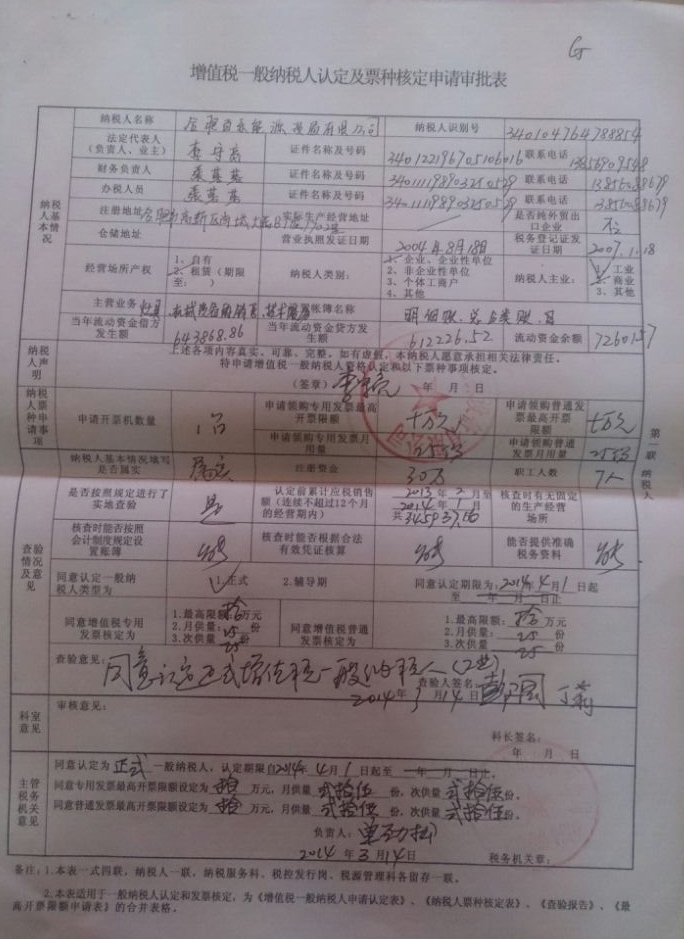 增值税一般纳税人认定及票种核定申请审批表
纳税人基本情况
纳税人名称 纳税人识别号 340104764788854
法定代表人（负责人、业主） 证件名称及号码 联系电话
财务负责人 证件名称及号码 联系电话
办税人员 证件名称及号码 联系电话
注册地址 实际生产经营地址 是否纯外贸出口企业 否
仓储地址 营业执照发证日期 2004年8月18日 税务登记证发证日期 2007.1.18
经营场所产权 1、自有 2、租赁（期限至： ） 纳税人类别： 1、企业、企业性单位 2、非企业性单位 3、个体工商户 4、其他 纳税人主业： 1、工业 2、商业 3、其他
主营业务 账簿名称 明细账、总分类账、
当年流动资金借方发生额 643868.86 当年流动资金贷方发生额 612226.52 流动资金余额
纳税人声明
上述各项内容真实、可靠、完整。如有虚假，本纳税人愿意承担相关法律责任。
特申请增值税一般纳税人资格认定和以下票种事项核定。
（签章） 年 月 日
纳税人票种申请事项
申请开票机数量 1台 申请领购专用发票最高开票限额 十万元 申请领购普通发票最高开票限额 十万元
申请领购专用发票月用量 25份 申请领购普通发票月用量 25份
第一联 纳税人
查验情况及意见
纳税人基本情况填写是否属实 属实 注册资金 30万 职工人数 7人
是否按照规定进行了实地查验 是 认定前累计应税销售额（连续不超过12个月的经营期内） 2013年2月至2014年1月 共 核查时有无固定的生产经营场所
核查时能否按照会计制度规定设置账簿 能 核查时能否根据合法有效凭证核算 能 能否提供准确税务资料 能
同意认定一般纳税人类型为 1.正式 2.辅导期 同意认定期限为：2014年4月1日起至 年 月 日止
同意增值税专用发票核定为 1.最高限额：拾万元 2.月供量：25份 3.次供量 25份 同意增值税普通发票核定为 1.最高限额：拾万元 2.月供量：25份 3.次供量 25份
查验意见：同意认定正式增值税一般纳税人
查验人签名：
2014年3月14日
科室意见
审核意见：
科长签名：
年 月 日
主管税务机关意见
同意认定为正式一般纳税人，认定期限自2014年4月1日起至 年 月 日止。
同意专用发票最高开票限额设定为拾万元，月供量贰拾伍份，次供量贰拾伍份。
同意普通发票最高开票限额设定为拾万元，月供量贰拾伍份，次供量贰拾伍份。
负责人：
2014年3月14日 税务机关章：
备注：1.本表一式四联，纳税人一联，纳税服务科、税控发行岗、税源管理科各留存一联。
2.本表适用于一般纳税人认定和发票核定，为《增值税一般纳税人申请认定表》、《纳税人票种核定表》、《查验报告》、《最
高开票限额申请表》的合并表格。